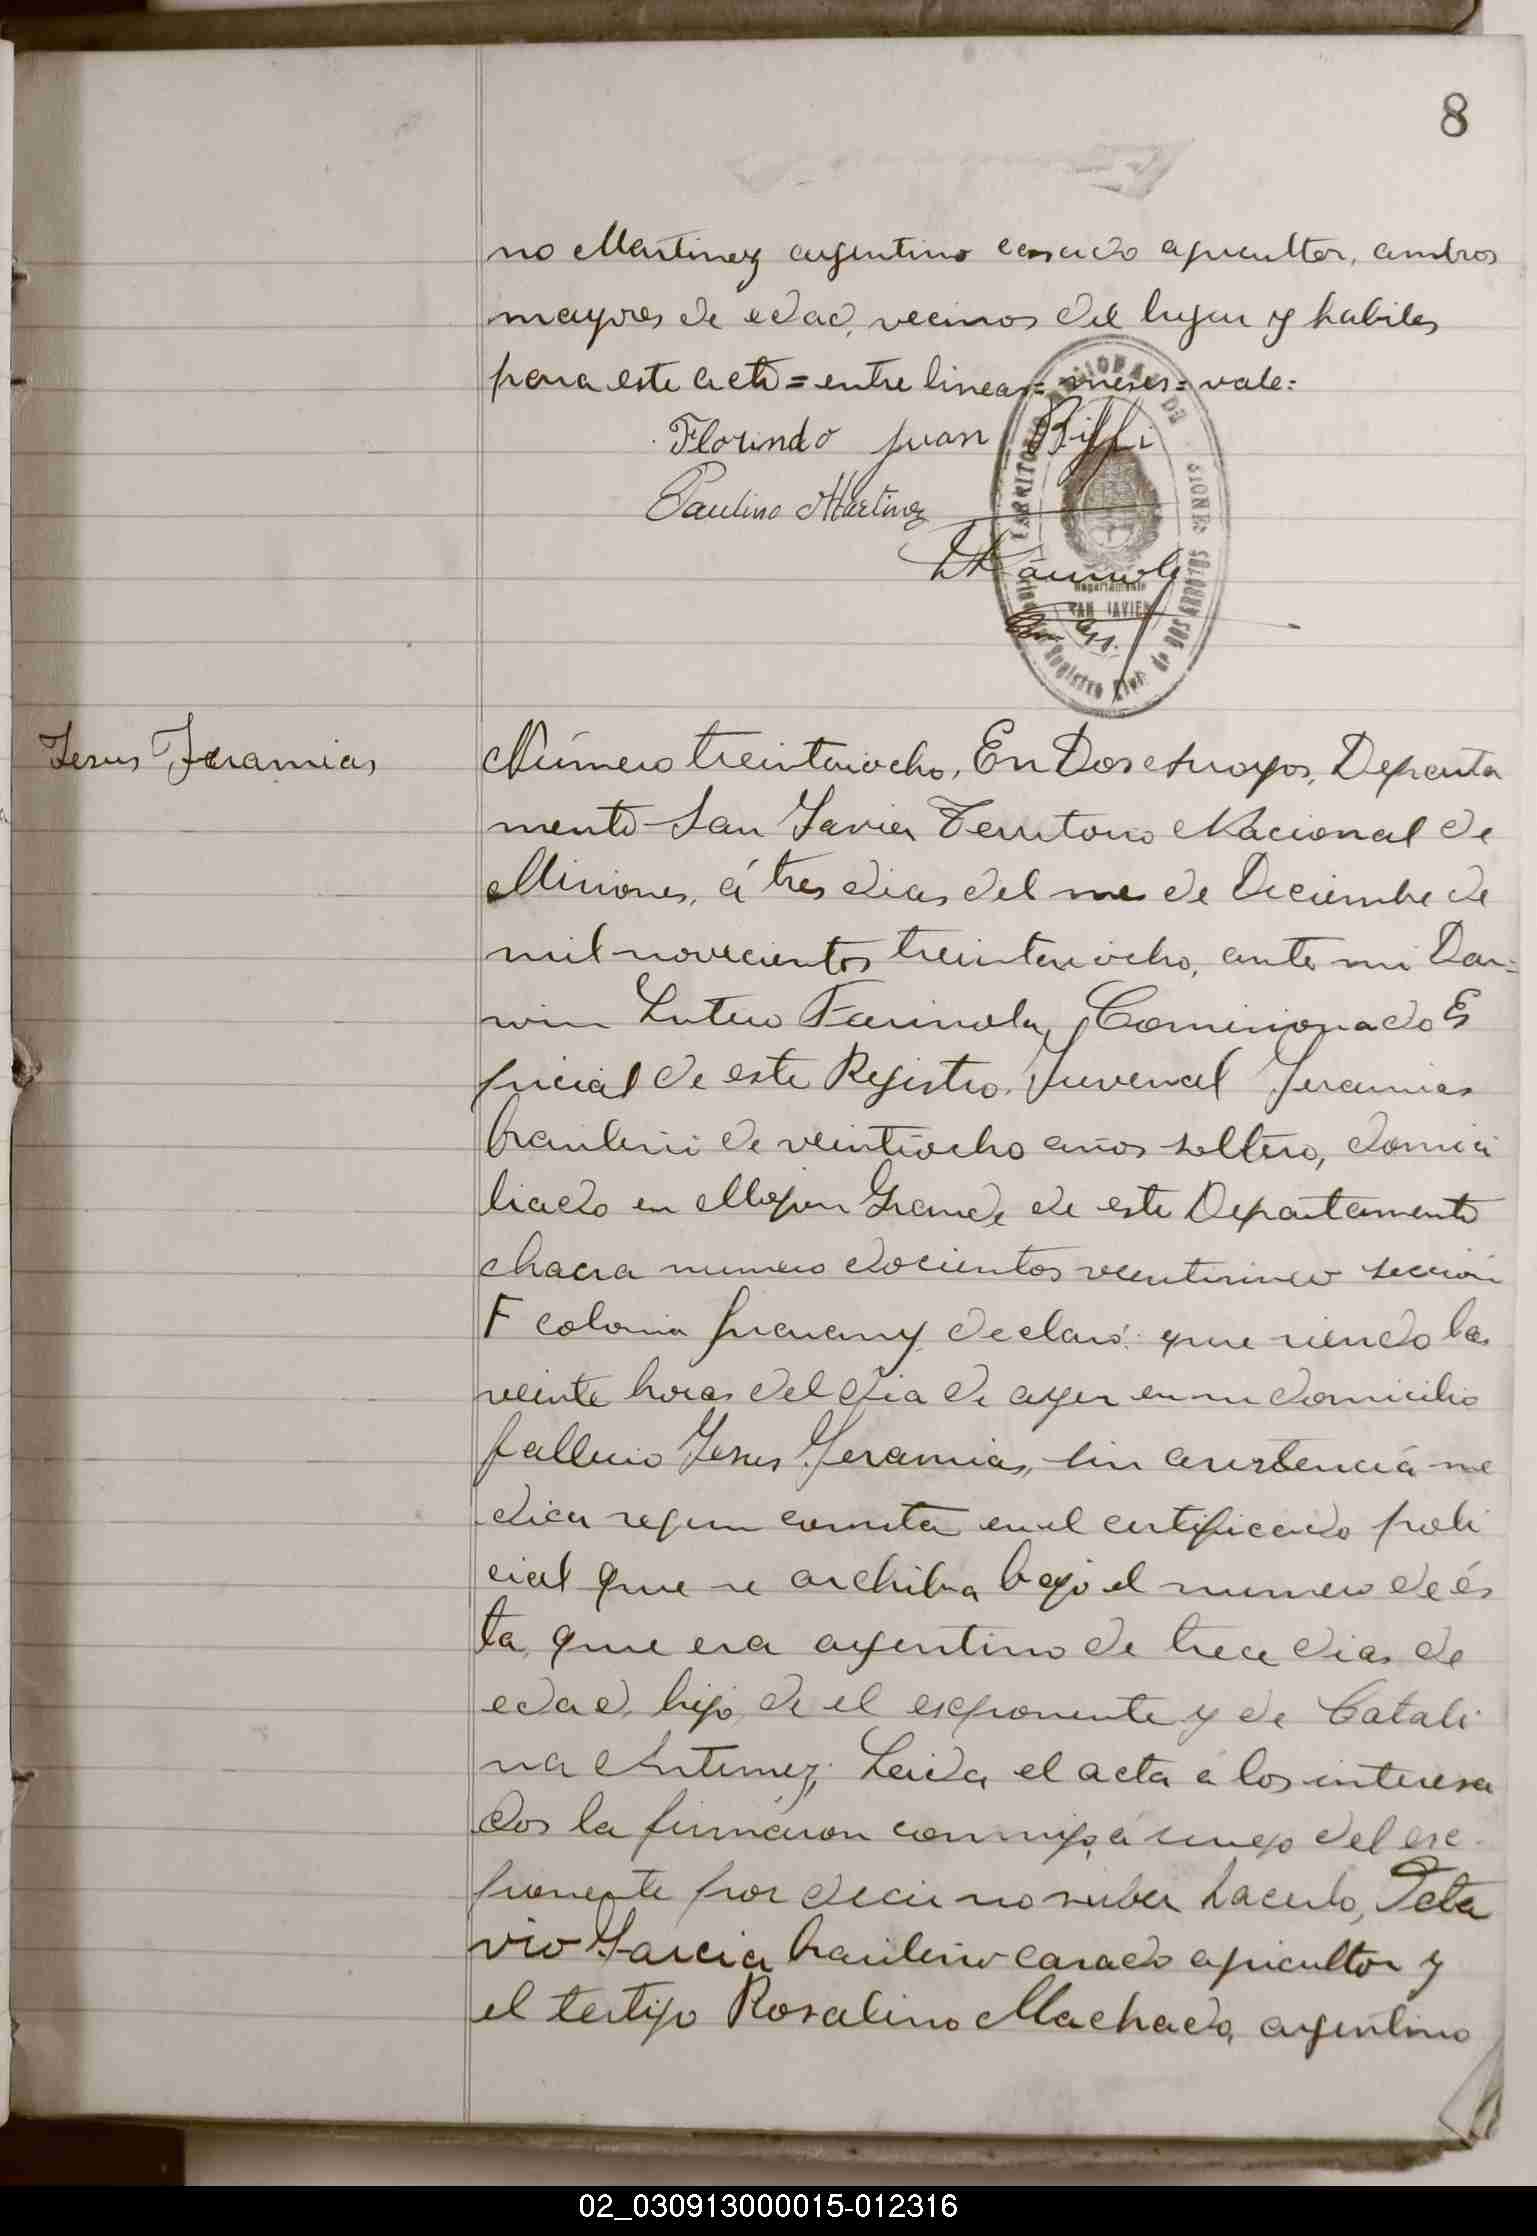 8
no Martinez argentino casado agricultor, ambos
mayores de edad, vecinos del lugar y habiles
para este acto = entre lineas = meses = vale =
Florindo Juan Biffi
Paulino Martinez
TERRITORIO NACIONAL DE MISIONES
Departamento
SAN JAVIER
Registro Civil de DOS ARROYOS
Jesus Jeramias
Número treintaiocho, En Dos Arroyos, Departa
mento San Javier Territorio Nacional de
Misiones, á tres dias del mes de Diciembre de
mil novecientos treintaiocho, ante mi Dar=
win Lutero Farinola, Comisionado Es
pecial de este Registro. Juvenal Jeramias
brasileño de veintiocho años soltero, domici
liado en Mojon Grande de este Departamento
chacra numero docientos veinticinco sección
F colonia declaró: que siendo las
veinte horas del dia de ayer en su domicilio
fallecio Jesus Jeramias, sin asistencia me
dica segun consta en el certificado poli
cial que se archiba bajo el numero de és
ta, que era argentino de trece dias de
edad, hijo de el esxponente y de Catali
na Antunez; Leida el acta á los interesa
dos la firmáron conmigo, á ruego del esx-
ponente por decir no saber hacerlo, Octa
vio Garcia brasileño casado agricultor y
el testigo Rosalino Machado, argentino
02_030913000015-012316